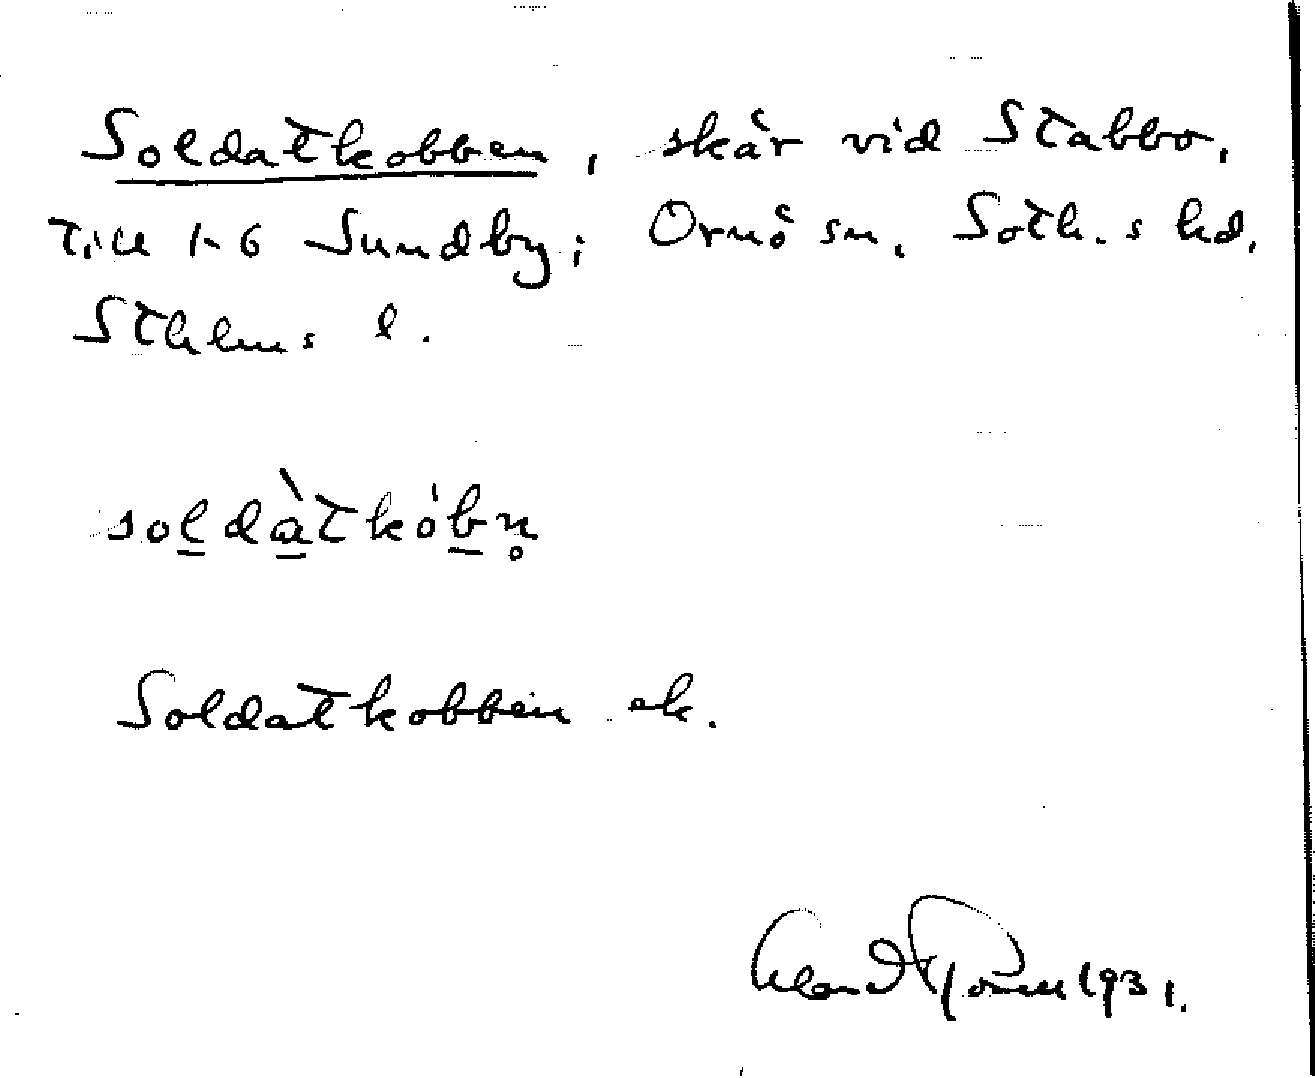 Soldatkobben, skär vid Stabbo,
till 1-6 Sundby; Ornö sn. Soth.s hd,
Sthlms l.
soldàtkóbn̥
Soldatkobben ek.
1931.